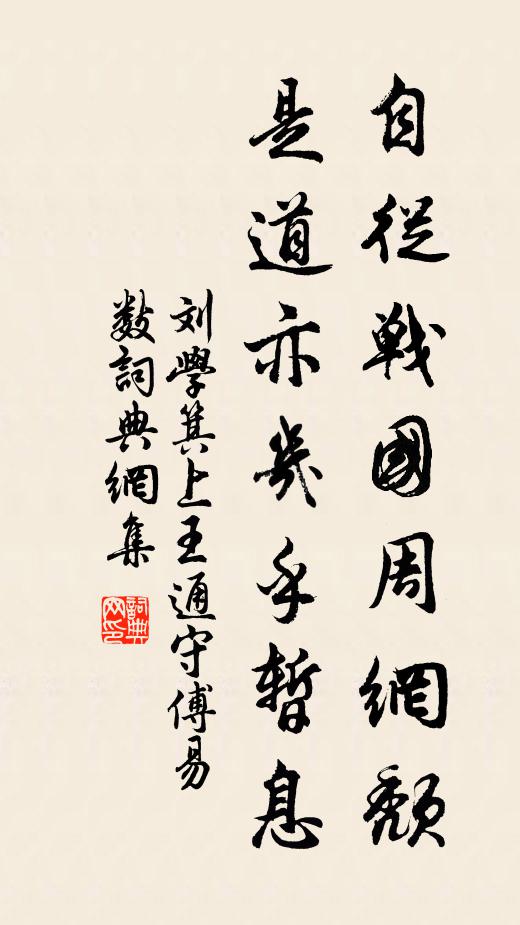 自從戰國周網頹
是道亦幾乎暫息
刘學箕上王通守傅易
數詞典網集
詞典网印